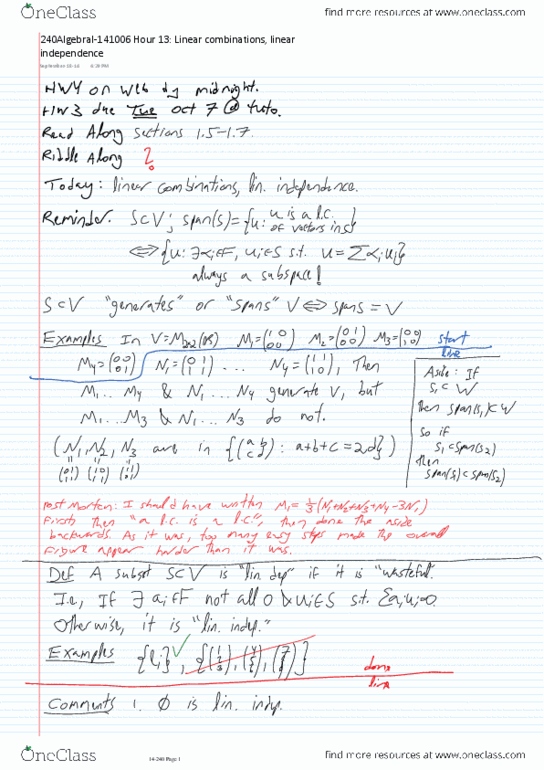 OneClass
find more resources at www.oneclass.com
240AlgebraI-141006 Hour 13: Linear combinations, linear
independence
HW4 on web by midnight.
HW3 due Tue Oct 7 @ tuto.
Read Along sections 1.5-1.7.
Riddle Along ?
Today: linear combinations, lin. independence.
Reminder. S⊂V; span(S)={u: u is a l.c. of vectors in S}
⟺{u: ∃αi∈F, ui∈S s.t. u=Σαiui}
always a subspace!
S⊂V "generates" or "spans" V ⟺ span S = V
Examples In V=M2x2(R) M1=(1 0 / 0 0) M2=(0 1 / 0 0) M3=(0 0 / 1 0) start line
M4=(0 0 / 0 1) N1=(0 1 / 1 1) ... N4=(1 1 / 1 0), Then
M1...M4 & N1...N4 generate V, but
M1...M3 & N1...N3 do not.
(N1, N2, N3 are in {(a b / c d): a+b+c=2d})
(0 1 / 1 1) (1 0 / 1 1) (1 1 / 0 1)
Aside: If
S1⊂W
Then span(S1)⊂W
So if
S1⊂span(S2)
then
span(S1)⊂span(S2)
Post Mortem: I should have written M1=1/3(N1+N2+N3+N4-3N1)
First, then "a l.c. is a l.c.", then done the aside
backwards. As it was, too many easy steps made the overall
figure appear harder than it was.
Def A subset S⊂V is "lin. dep" if it is "wasteful".
I.e., If ∃ ai∈F not all 0 & ui∈S s.t. Σaiui=0.
Otherwise, it is "lin. indep."
Examples {ei}✓, {(1 2 3), (4 5 6), (7 8 9)}
done line
Comments 1. ∅ is lin. indep.
14-240 Page 1
OneClass
find more resources at www.oneclass.com